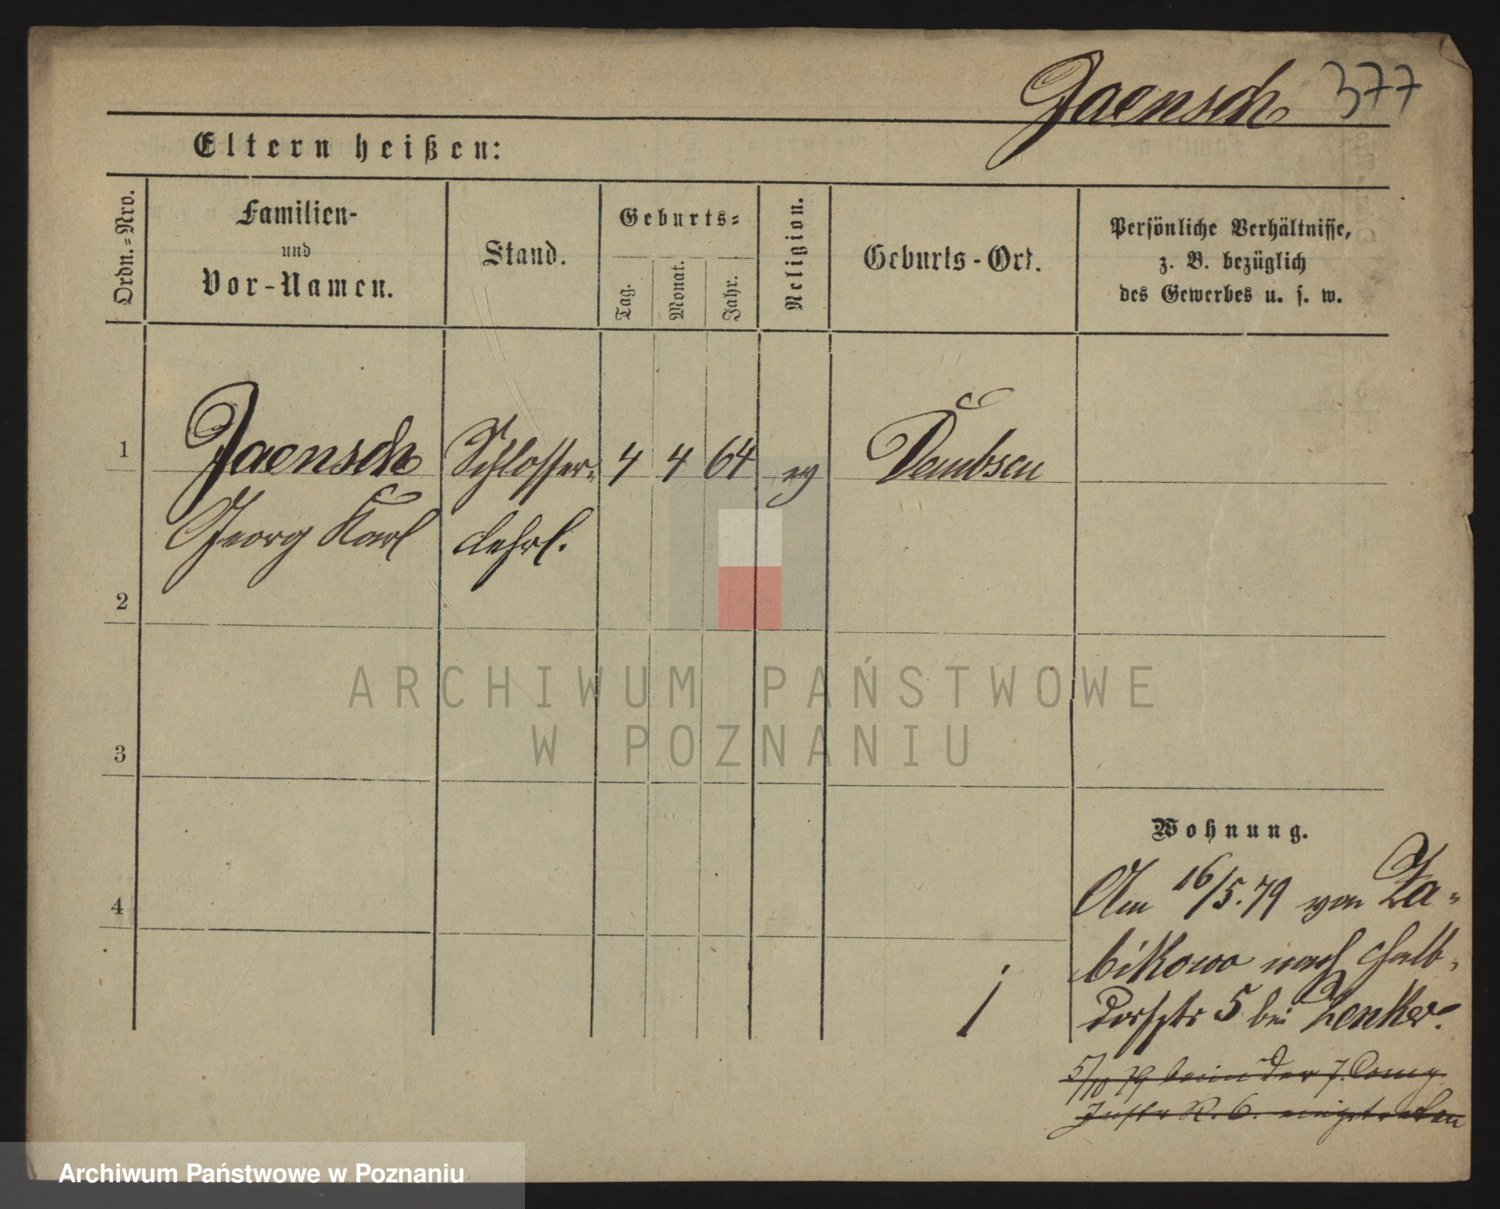 Jaensch 377
Eltern heißen:
Ordn.=Nro.
Familien-
und
Vor-Namen.
Stand.
Geburts=
Tag.
Monat.
Jahr.
Religion.
Geburts-Ort.
Persönliche Verhältnisse,
z. B. bezüglich
des Gewerbes u. s. w.
1 Jaensch Schlosser- 4 4 64 ev Dembsen
Georg Karl lehrl.
2
3
4
ARCHIWUM PAŃSTWOWE
W POZNANIU
Wohnung.
Am 16/5.79 von Za-
bikowo nach Halb-
dorfstr 5 bei Zenker.
5/10 79 der 7. Comp
R. 6. eingetreten
Archiwum Państwowe w Poznaniu